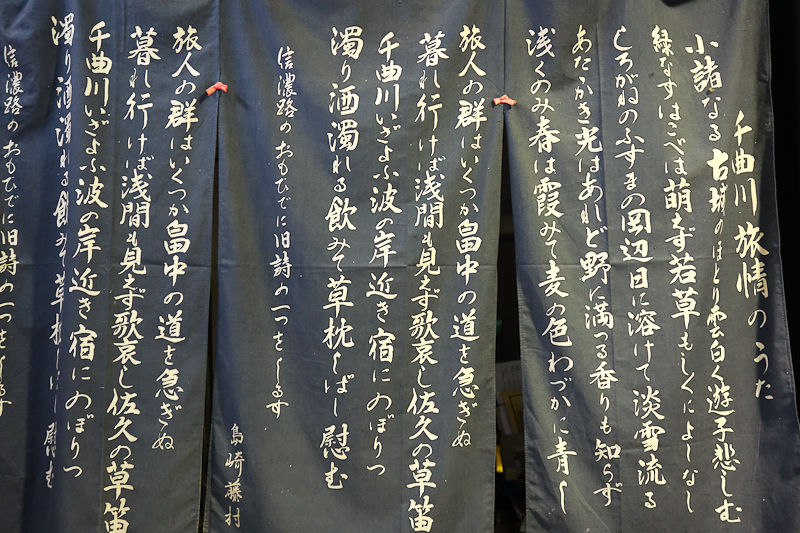 千曲川旅情のうた
小諸なる古城のほとり雲白く遊子悲しむ
緑なすはこべは萌えず若草もしくによしなし
しろがねのふすまの岡辺日に溶けて淡雪流る
あたゝかき光はあれど野に満つる香りも知らず
浅くのみ春は霞みて麦の色わづかに青し
旅人の群はいくつか畠中の道を急ぎぬ
暮れ行けば浅間も見えず歌哀し佐久の草笛
千曲川いざよふ波の岸近き宿にのぼりつ
濁り酒濁れる飲みて草枕しばし慰む
信濃路のおもひでに旧詩の一つをしるす
島崎藤村
旅人の群はいくつか畠中の道を急ぎぬ
暮れ行けば浅間も見えず歌哀し佐久の草笛
千曲川いざよふ波の岸近き宿にのぼりつ
濁り酒濁れる飲みて草枕しばし慰む
信濃路のおもひでに旧詩の一つをしるす